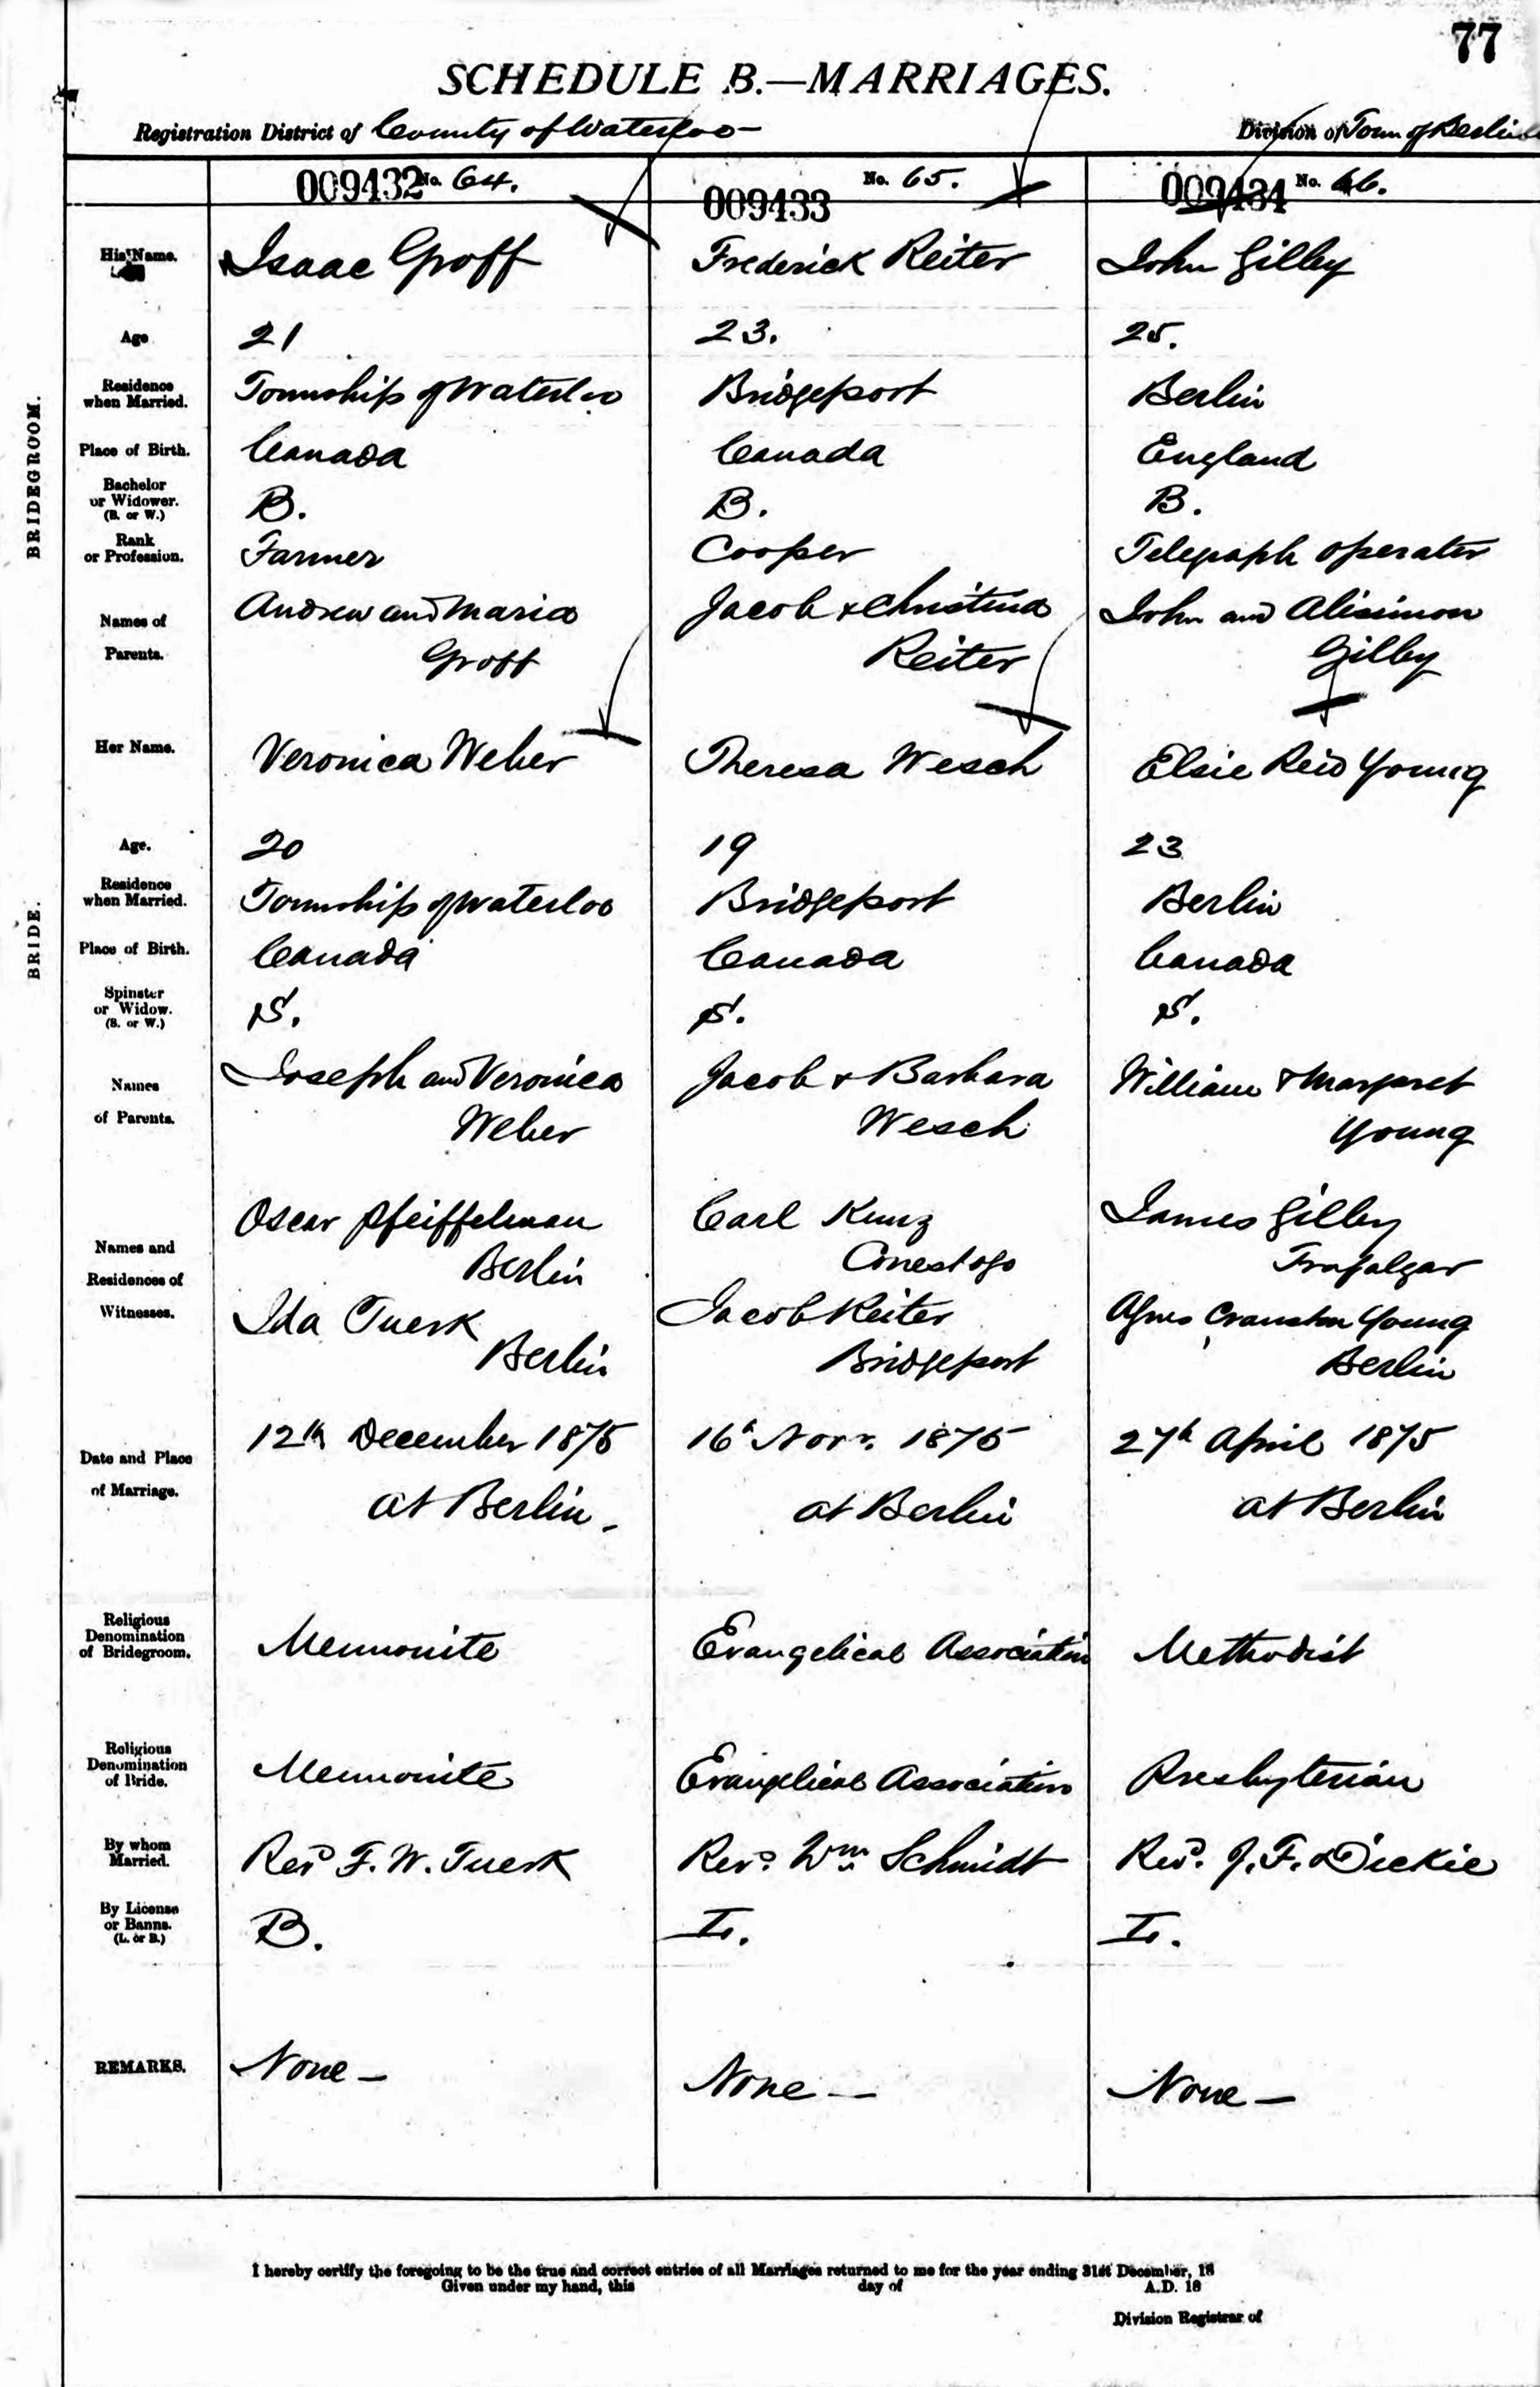 77
SCHEDULE B.—MARRIAGES.
Registration District of County of Waterloo Division of Town of Berlin
009432 No. 64. 009433 No. 65. 009434 No. 66.
BRIDEGROOM.
His Name. Isaac Groff Frederick Reiter John Gilby
Age 21 23. 25.
Residence when Married. Township of Waterloo Bridgeport Berlin
Place of Birth. Canada Canada England
Bachelor or Widower. (B. or W.) B. B. B.
Rank or Profession. Farmer Cooper Telegraph operator
Names of Andrew and Maria Jacob & Christina John and
Parents. Groff Reiter Gilby
BRIDE.
Her Name. Veronica Weber Theresa Wesch Elsie Reid Young
Age. 20 19 23
Residence when Married. Township of Waterloo Bridgeport Berlin
Place of Birth. Canada Canada Canada
Spinster or Widow. (S. or W.) S. S. S.
Names Joseph and Veronica Jacob & Barbara William & Margaret
of Parents. Weber Wesch Young
Names and Oscar Pfeiffelman Carl Kunz James Gilby
Residences of Berlin Conestogo Trafalgar
Witnesses. Ida Tuerk Jacob Reiter Agnes Cranston Young
Berlin Bridgeport Berlin
Date and Place 12th December 1875 16th Novr. 1875 27th April 1875
of Marriage. at Berlin. at Berlin at Berlin
Religious Denomination of Bridegroom. Mennonite Evangelical Association Methodist
Religious Denomination of Bride. Mennonite Evangelical Association Presbyterian
By whom Married. Revd F. W. Tuerk Revd. Wm. Schmidt Revd. J. F. Dickie
By License or Banns. (L. or B.) B. L. L.
REMARKS. None — None — None —
I hereby certify the foregoing to be the true and correct entries of all Marriages returned to me for the year ending 31st December, 18
Given under my hand, this day of A.D. 18
Division Registrar of